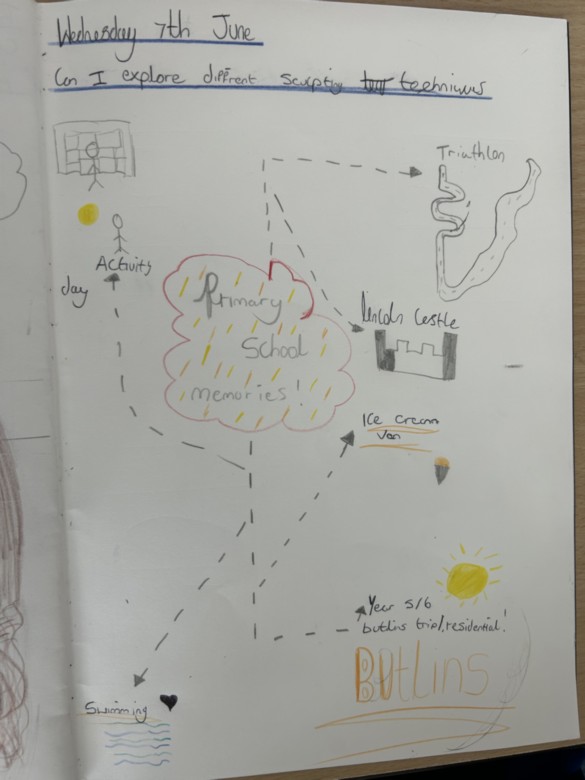 Wednesday 7th June
Can I explore different sculpting techniques
Triathlon
Activity
day
Primary
School
memories!
Lincoln Castle
Ice cream
Van
Year 5/6
butlins trip/residential!
BUtLinS
Swimming